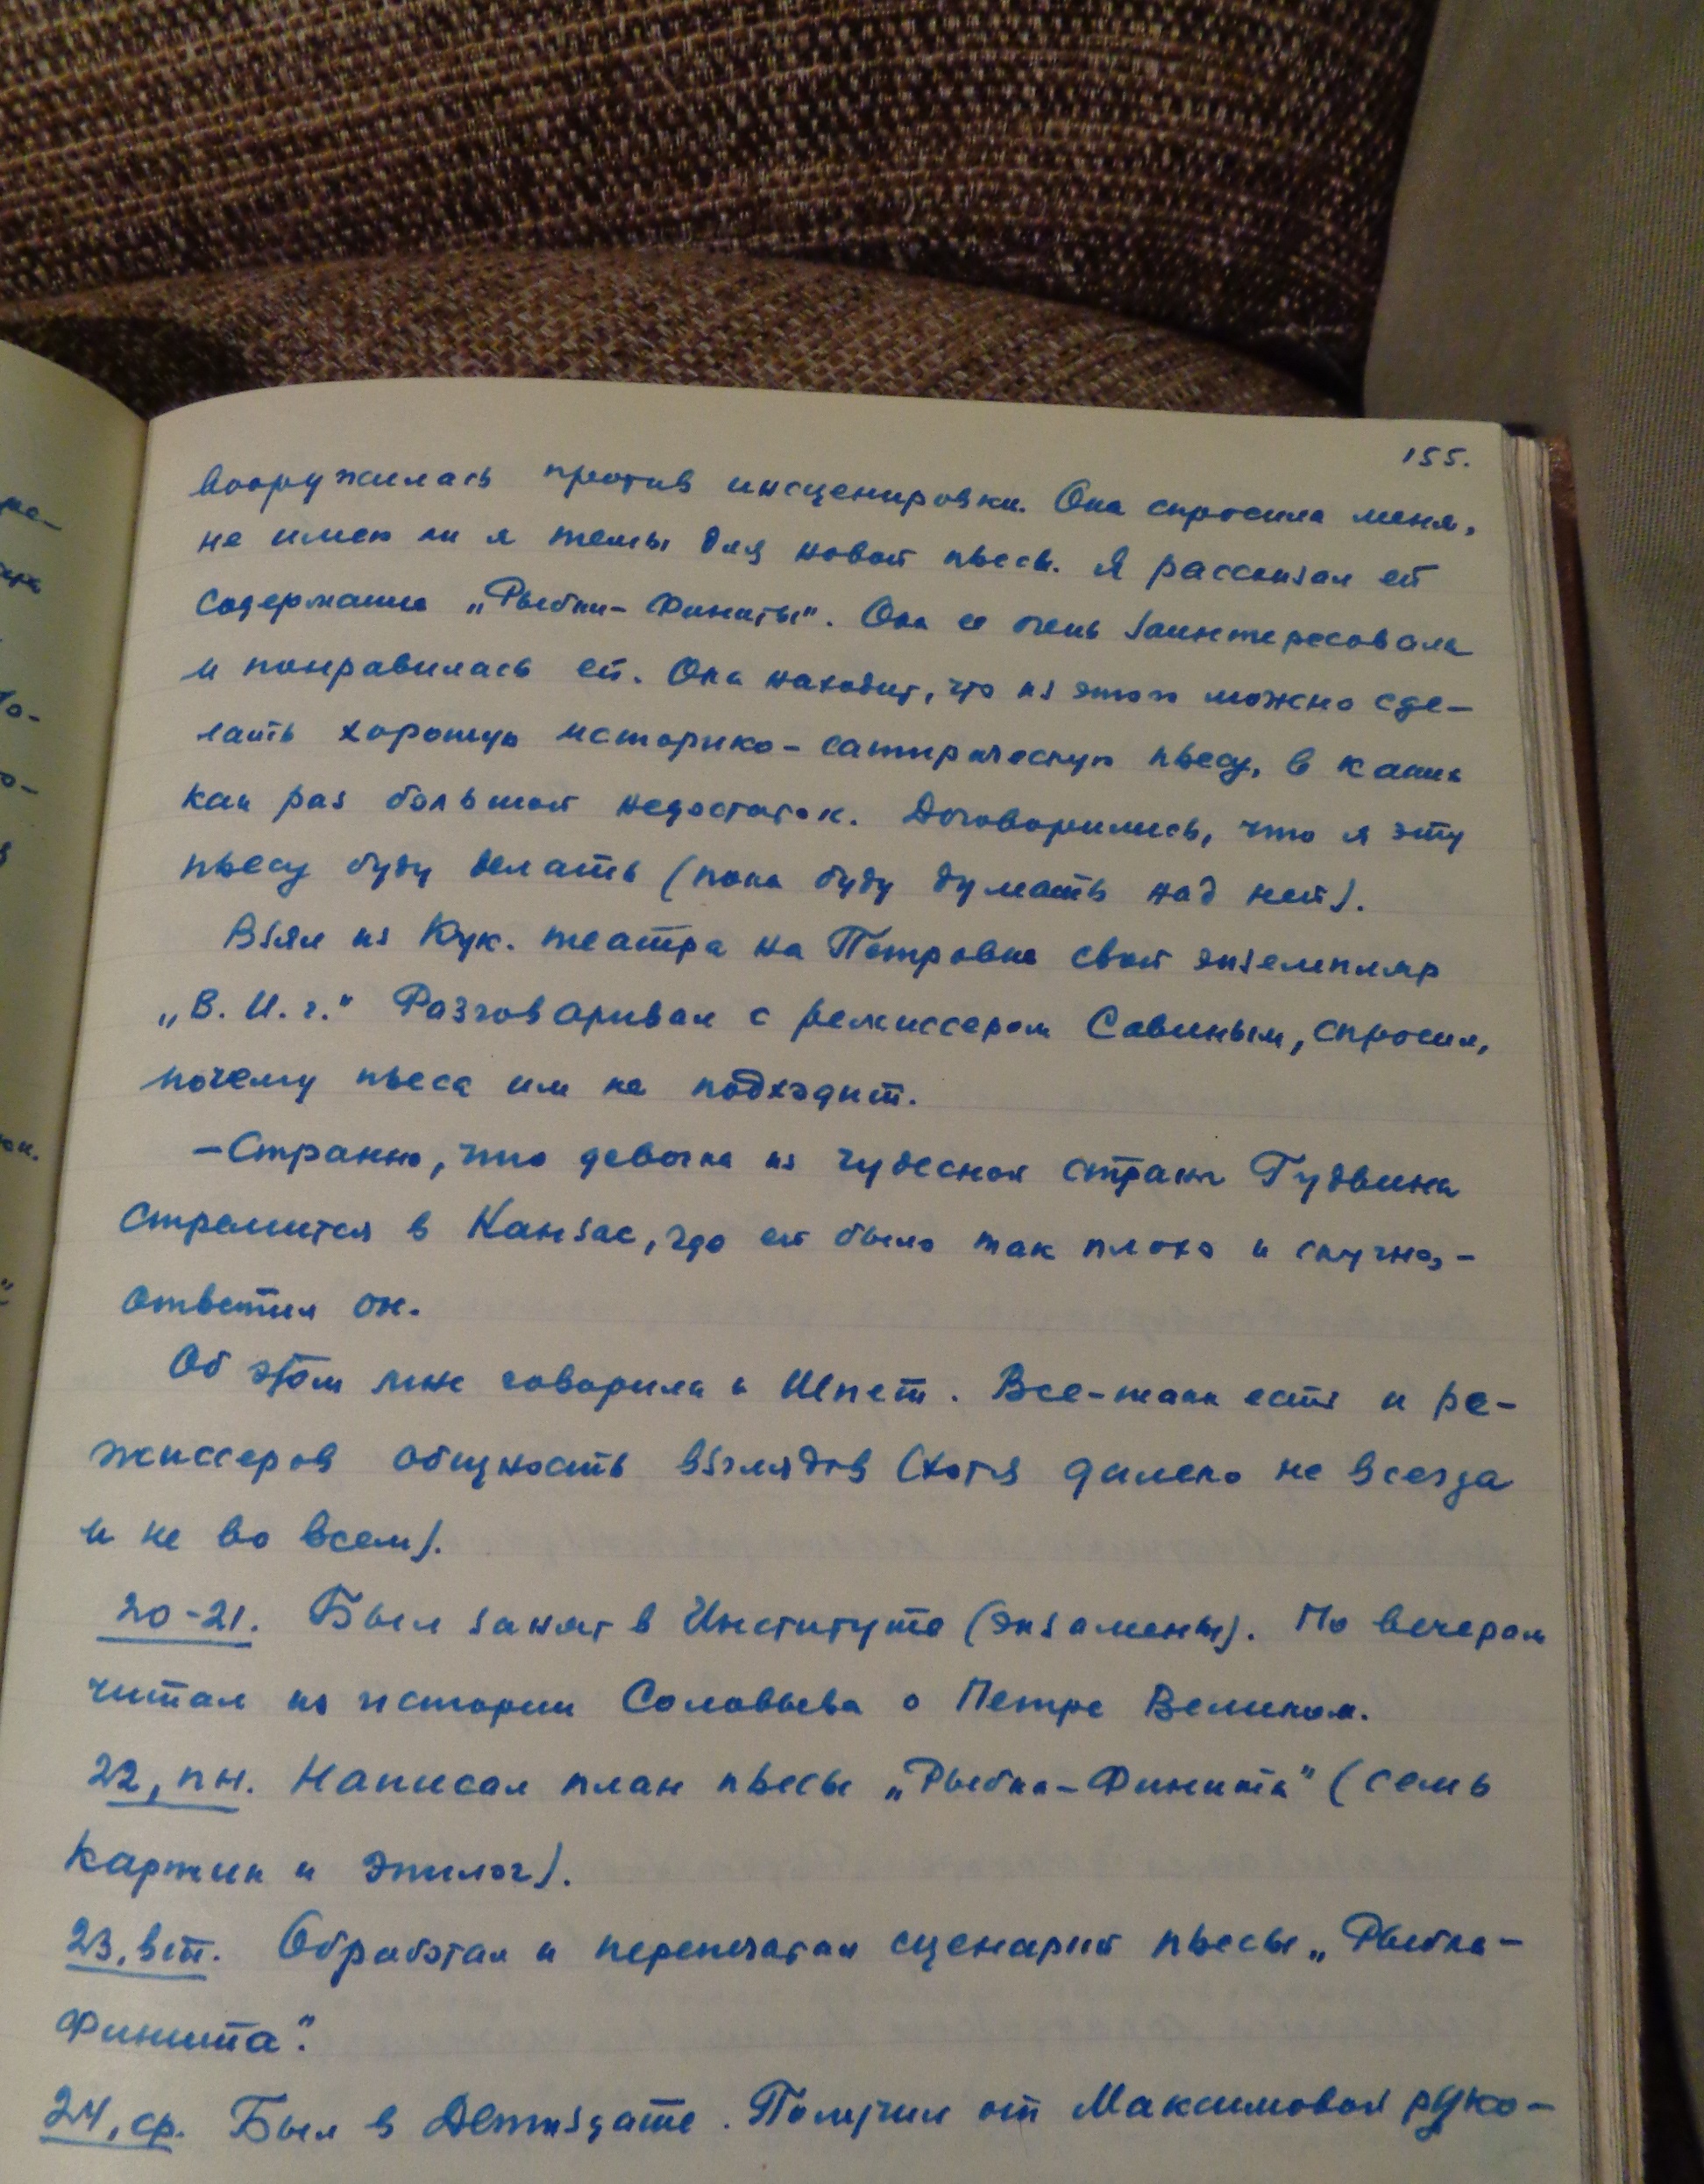 155.
вооружилась против инсценировки. Она спросила меня,
не имею ли я темы для новой пьесы. Я рассказал ей
содержание „Рыбки-Финиты“. Она ее очень заинтересовала
и понравилась ей. Она находит, что из этого можно сде-
лать хорошую историко-сатирическую пьесу, в каких
как раз большой недостаток. Договорились, что я эту
пьесу буду делать (пока буду думать над ней).
Взял из Кук. театра на Петровке свой экземпляр
„В. И. г.“ Разговаривал с режиссером Савиным, спросил,
почему пьеса им не подходит.
— Странно, что девочка из чудесной страны Гудвина
стремится в Канзас, где ей было так плохо и скучно, —
ответил он.
Об этом мне говорила и Шпет. Все-таки есть и ре-
жиссеров общность взглядов (хотя далеко не всегда
и не во всем).
20-21. Был занят в Институте (экзамены). По вечерам
читал из истории Соловьева о Петре Великом.
22, пн. Написал план пьесы „Рыбка-Финита“ (семь
картин и эпилог).
23, вт. Обработал и перепечатал сценарий пьесы „Рыбка-
Финита“.
24, ср. Был в Детиздате. Получил от Максимовой руко-